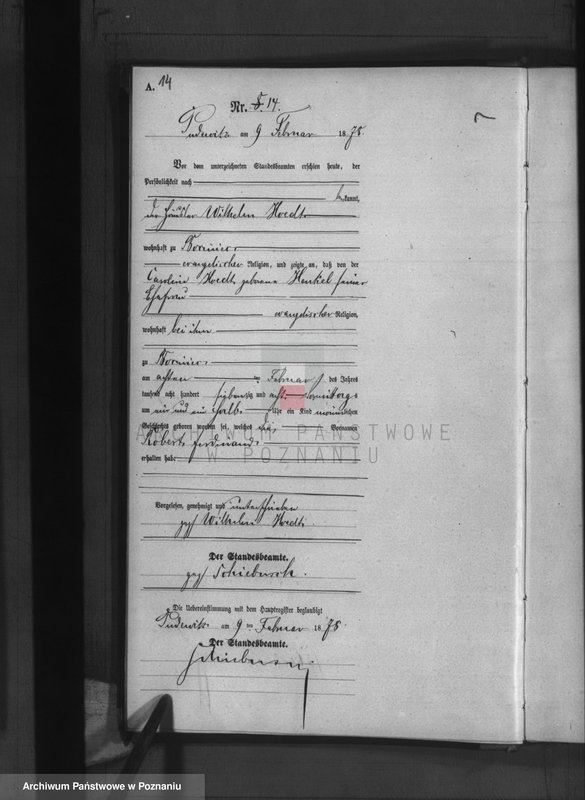 A. 14
Nr. 14.
Pudewitz am 9 Februar 1878
Vor dem unterzeichneten Standesbeamten erschien heute, der
Persönlichkeit nach
bekannt,
der Häusler Wilhelm Hoedt
wohnhaft zu
evangelischer Religion, und zeigte an, daß von der
Caroline Hoedt geborene Henkel seiner
Ehefrau
evangelischer Religion,
wohnhaft bei ihm
zu
am achten ten Februar des Jahres
tausend acht hundert siebenzig und acht Vormittags
um ein und ein halb Uhr ein Kind männlichen
Geschlechts geboren worden sei, welches die Vornamen
Robert Ferdinand
erhalten habe
Vorgelesen, genehmigt und unterschrieben
gez Wilhelm Hoedt
Der Standesbeamte.
gez
Die Uebereinstimmung mit dem Hauptregister beglaubigt
Pudewitz am 9 ten Februar 1878
Der Standesbeamte.
ARCHIWUM PAŃSTWOWE
W POZNANIU
Archiwum Państwowe w Poznaniu